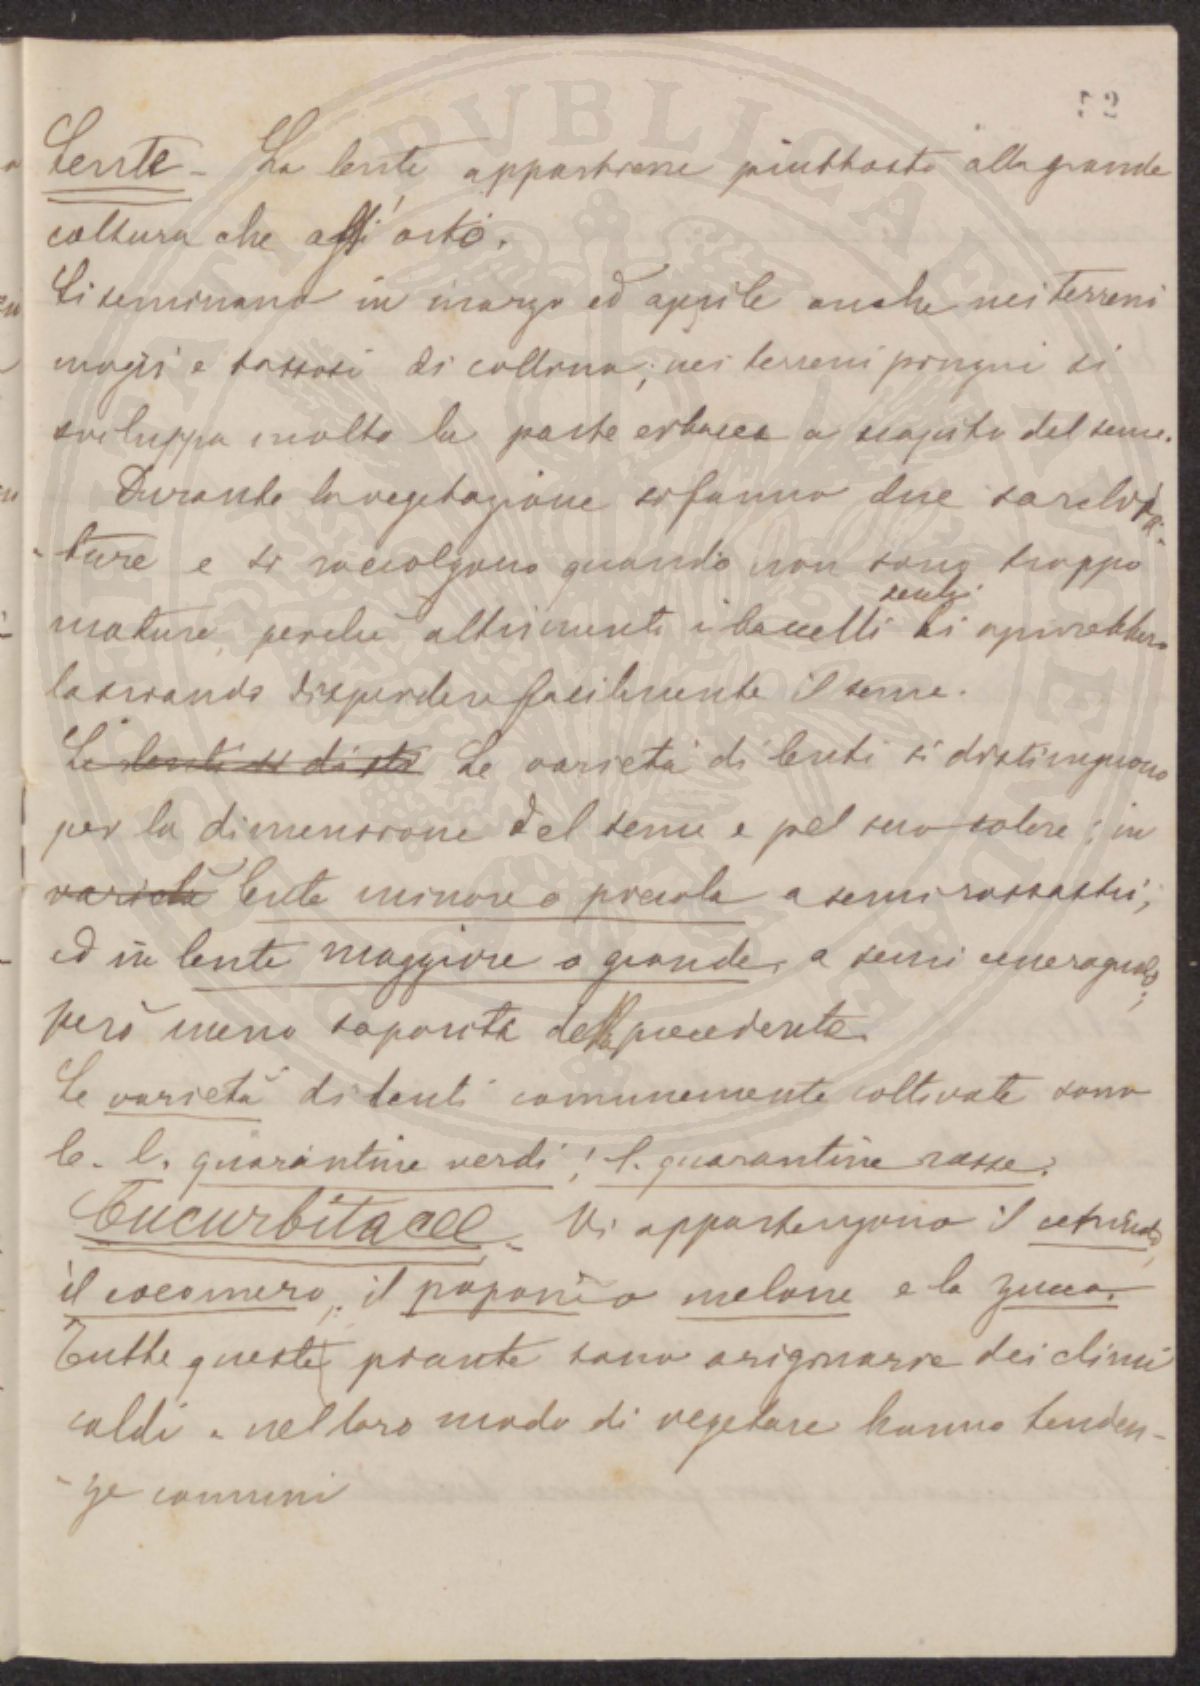 Lente - La lente appartiene piuttosto alla grande
coltura che all'orto.
Si seminano in marzo ed aprile anche nei terreni
magri e sassosi di collina; nei terreni pingui si
sviluppa molto la parte erbacea a scapito del seme.
Durante la vegetazione si fanno due sarchia-
-ture e si raccolgono quando non sono troppo
mature, perchè altrimenti i baccelli secchi si aprirebbero
lasciando disperdere facilmente il seme.
Le lenti si disti Le varietà di lenti si distinguono
per la dimensione del seme e pel suo colore; in
varietà lente minore o piccola a semi rossastri;
ed in lente maggiore o grande, a semi
però meno saporita della precedente.
Le varietà di lenti comunemente coltivate sono
le l. quarantine verdi; l. quarantine rosse.
Cucurbitacee - Vi appartengono il cetriolo,
il cocomero, il popone o melone e la zucca.
Tutte queste piante sono originarie dei climi
caldi e nel loro modo di vegetare hanno tenden-
-ze comuni
52
PVBLICAE